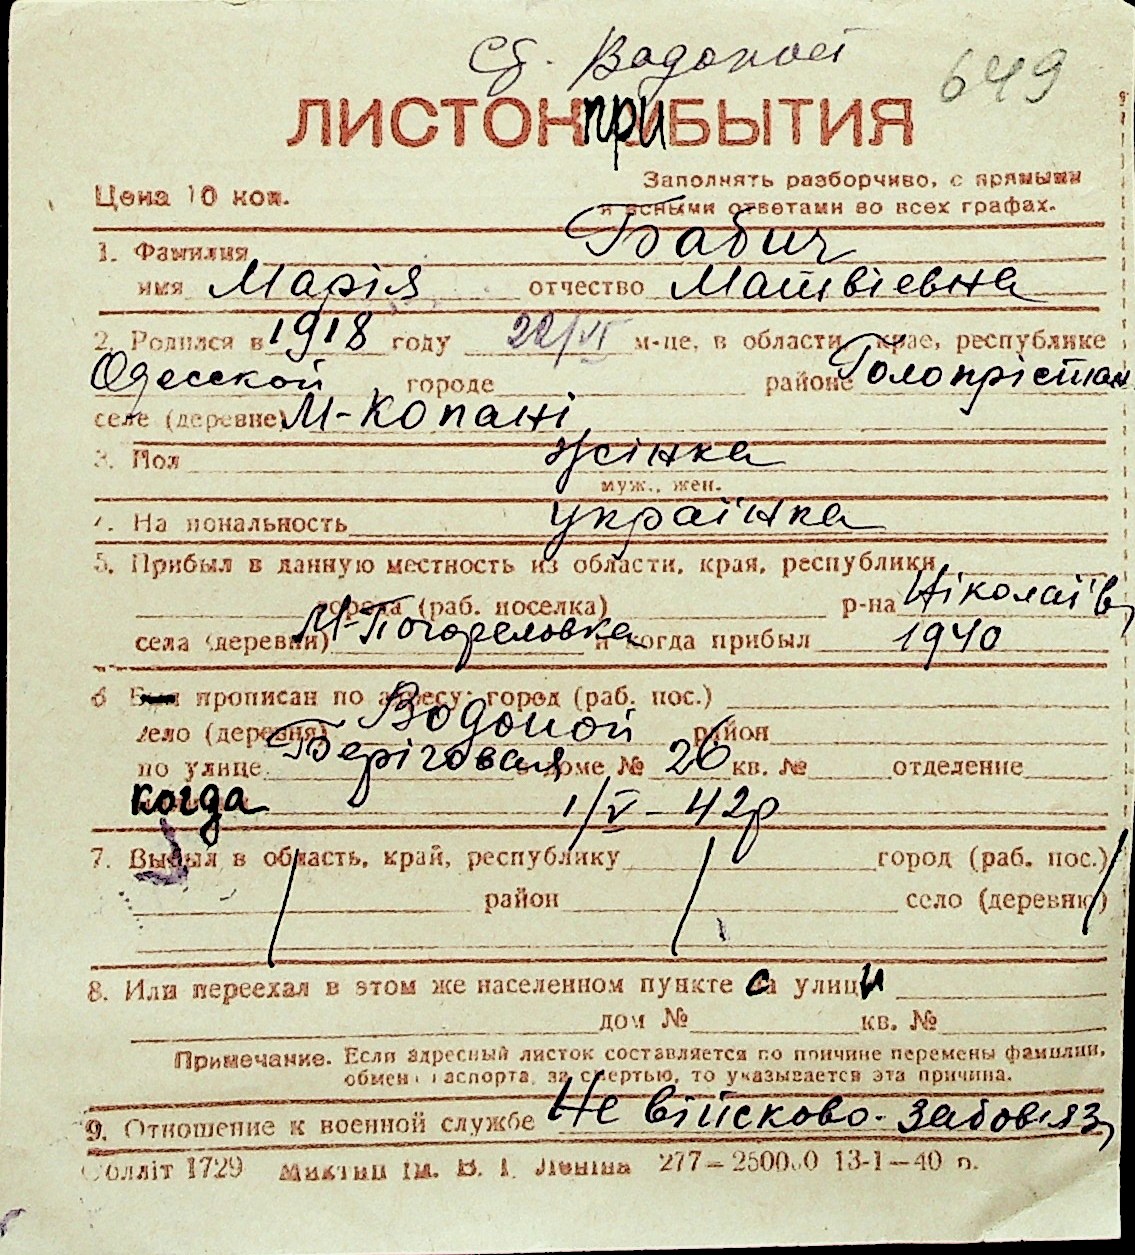 Сб. Водопой
649
ЛИСТОК ПРИБЫТИЯ
Заполнять разборчиво, с прямыми
Цена 10 коп.
и ясными ответами во всех графах.
1. Фамилия Бабич
имя Марія отчество Матвіевна
2. Родился в 1918 году 22/VI м-це, в области, крае, республике
Одесской, городе районе Голопрістан
селе (деревне) М-Копані
3. Пол жінка
муж., жен.
4. Национальность українка
5. Прибыл в данную местность из области, края, республики
города (раб. поселка) р-на Ніколаїв,
села (деревни) М-Погореловка и когда прибыл 1940
6 прописан по адресу: город (раб. пос.)
село (деревня) Водопой район
по улице Беріговая доме № 26 кв. № отделение
когда 1/V-42р
7. Выбыл в область, край, республику город (раб. пос.)
район село (деревню)
8. Или переехал в этом же населенном пункте с улици
дом № кв. №
Примечание. Если адресный листок составляется по причине перемены фамилии,
обмена паспорта, за смертью, то указывается эта причина.
9. Отношение к военной службе Не військово-забовяз,
Облліт 1729 Миктип ім. В. І. Леніна 277-250000 13-1-40 п.